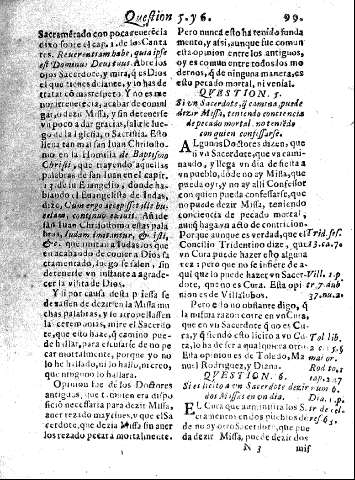 Question 5. y 6. 99.
Sacramẽtado con poca reuerẽcia
dixo sobre el cap. 1. de los Canta
res. Reuerentiam habe, quia ipse
est Dominus Deus tuus. Abre los
ojos Sacerdote, y mira, q̃ es Dios
el que tienes delante, y lo has de
tratar cõ mas respeto. Y no es me
nor irreuerẽcia, acabar de comul
gar, o dezir Missa, y sin detenerse
vn poco a dar gracias, salirse luego
de la Iglesia, o Sacristia. Esto
llena tan mal san Iuan Chrisosto
mo en la Homilia de Baptismo
Christi, que trayendo aquellas
palabras de san Iuan en el capit.
13. de su Euangelio, donde ha
blando el Euangelista de Iudas,
dize, Cùm ergo accepisset ille bu
cellam, continuò exiuit. Añade
san Iuan Chrisostomo estas pala
bras, Iudam imitantur, &
&c. que imitan a Iudas los que
en acabando de comer a Dios sa
cramentado, luego se salen, sin
detenerse vn instante a agrade
cer la visita de Dios.
Y si por causa desta priessa se
dexassen de dezir en la Missa mu
chas palabras, y se atropellassen
las ceremonias, mire el Sacerdo
te, que esto haze, q̃ camino pue
de hallar, para escusarlo de no pe
car mortalmente, porque yo no
lo he hallado, ni lo hallo, ni creo,
que ninguno lo hallarà.
Opinion fue de los Doctores
antiguos, que no tener era dispo
sicio necessaria para dezir Missa,
auer rezado maytines, y que el Sa
cerdote, que dezia Missa sin auer
los rezado pecara mortalmente.
Pero nunca esto ha tenido funda
mento, y assi, aunque fue comun
esta opinion entre los antiguos,
oy es comun entre todos los mo
dernos, q̃ de ninguna manera, es
esto pecado mortal, ni venial.
QVESTION. 5.
Si vn Sacerdote, q̃ camina, puede
dezir Missa, teniendo conciencia
de pecado mortal, no teniẽdo
con quien confessarse.
ALgunos Doctores dizen, que
si vn Sacerdote, que va cami
nando, llega vn dia de fiesta a
vn pueblo, donde no ay Missa, que
pueda oyr, y no ay alli Confessor
con quien pueda confessarse, que
no puede dezir Missa, teniendo
conciencia de pecado mortal,
aunq̃ haga vn año de contricion.
Porque aunque es verdad, que el
Concilio Tridentino dize, que
vn Cura puede hazer esto alguna
vez: pero que no se infiere de a
qui que lo puede hazer vn Sacer
dote, que no es Cura. Esta opi
nion es de Villalobos.
Trid. ses.
13. ca. 7.
Vill. 1. p.
tr. 7. dub
37. nu. 2.
Pero esto no obstante digo, q̃
la misma razon corre en vn Cura,
que en vn Sacerdote q̃ no es Cu
ra, y q̃ siendo esto licito a vn Cu
ra, lo ha de ser a qualquiera otro.
Esta opinion es de Toledo, Ma
nuel Rodriguez, y Diana.
Tol lib.
Rod. to. 1
QVESTION. 6.
Si es licito a vn Sacerdote dezir
dos Missas en vn dia.
EL Cura que administra los S
cramentos en dos pueblos de
no ay otro Sacerdote, que pue
da dezir Missa, puede dezir dos
N 3 mis